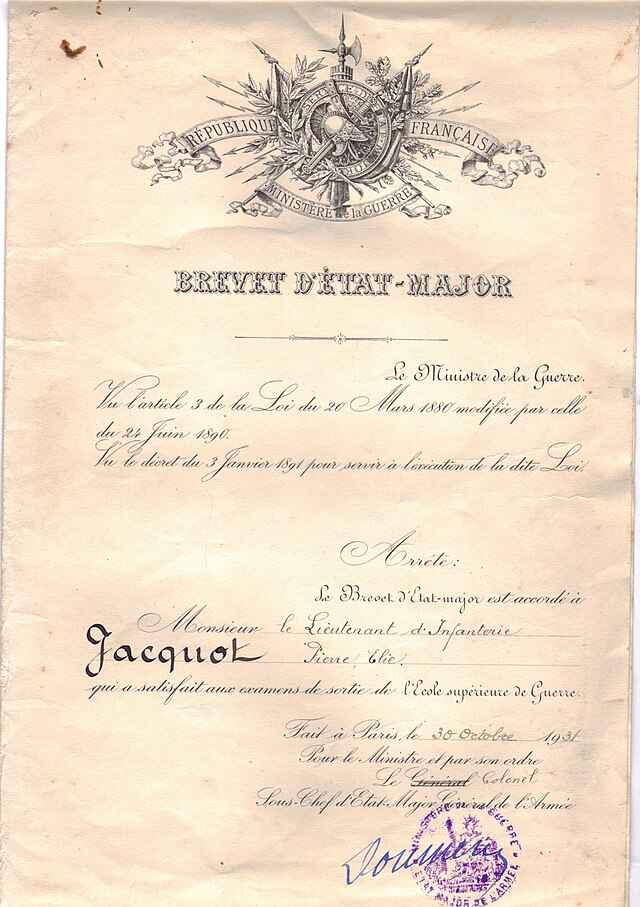 RÉPUBLIQUE FRANÇAISE
MINISTÈRE de la GUERRE
BREVET D'ÉTAT-MAJOR
Le Ministre de la Guerre.
Vu l'article 3 de la Loi du 20 Mars 1880 modifiée par celle
du 24 Juin 1890.
Vu le décret du 3 Janvier 1891 pour servir à l'exécution de la dite Loi.
Arrête:
Le Brevet d'État-major est accordé à
Monsieur le Lieutenant d'Infanterie
Jacquot Pierre Elie
qui a satisfait aux examens de sortie de l'École supérieure de Guerre.
Fait à Paris, le 30 Octobre 1931
Pour le Ministre et par son ordre
Le Général Colonel
Sous-Chef d'État-Major Général de l'Armée
MINISTÈRE DE LA GUERRE
ÉTAT MAJOR DE L'ARMÉE